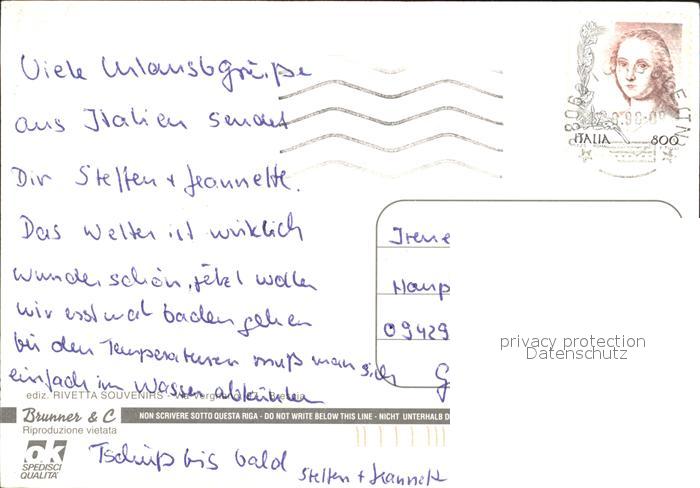 Viele Urlaubsgrüße
aus Italien sendet
Dir Steffen + Jeannette.
Das Wetter ist wirklich
wunderschön, jetzt wollen
wir erst mal baden gehen
bei den Temperaturen muß man sich
einfach im Wasser abkühlen
Tschüß bis bald
Steffen + Jeannett
ITALIA 800
Irene
Haup
09429
G
privacy protection
Datenschutz
ediz. RIVETTA SOUVENIRS - Via
Brunner & C
NON SCRIVERE SOTTO QUESTA RIGA - DO NOT WRITE BELOW THIS LINE - NICHT UNTERHALB D
Riproduzione vietata
ok
SPEDISCI
QUALITÀ